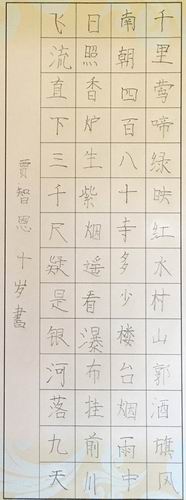 千里莺啼绿映红水村山郭酒旗风
南朝四百八十寺多少楼台烟雨中
日照香炉生紫烟遥看瀑布挂前川
飞流直下三千尺疑是银河落九天
賈智恩十岁書